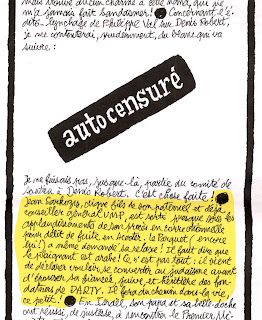 mais trouvé aucun charme à cette nana, qui ne
m'a jamais fait bandonner! Concernant l'é-
dito-lynchage de Philippe Val sur Denis Robert,
je me contenterai, prudemment, du blanc qui va
suivre :
autocensuré
Je ne faisais pas, jusque-là, partie du comité de
soutien à Denis Robert. C'est chose faite!
Jean Sarkozy, digne fils de son paternel et déjà
conseiller général UMP, est sorti presque sous les
applaudissements de son procès en correctionnelle
pour délit de fuite en scooter. Le Parquet (encore
lui!) a même demandé sa relaxe! Il faut dire que
le plaignant est arabe! Ce n'est pas tout : il vient
de déclarer vouloir se convertir au judaïsme avant
d'épouser sa fiancée, juive, et héritière des fon-
dateurs de DARTY. Il fera du chemin dans la vie,
ce petit! En Israël, son papa et sa belle-doche
ont réussi, de justesse, à rencontrer le Premier Mi-